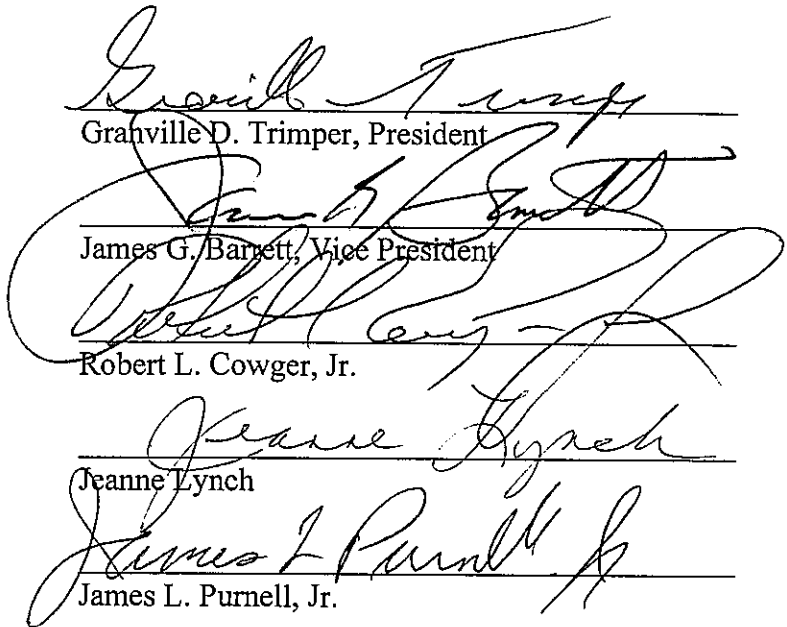 Granville Trimper
Granville D. Trimper, President
James G. Barrett
James G. Barrett, Vice President
Robert L Cowger Jr
Robert L. Cowger, Jr.
Jeanne Lynch
Jeanne Lynch
James L Purnell Jr
James L. Purnell, Jr.